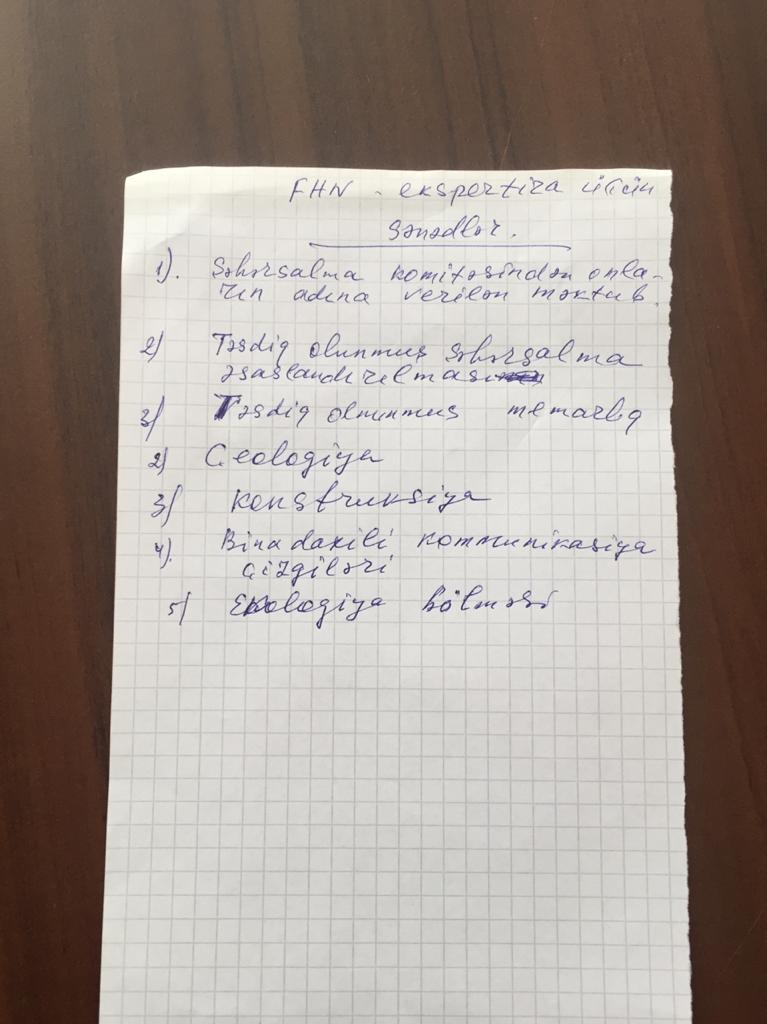 FHN - ekspertiza üçün
sənədlər.
1). Şəhərsalma komitəsindən onla-
rın adına verilən məktub.
2) Təsdiq olunmuş şəhərsalma
əsaslandırılması
3) Təsdiq olmunmuş memarlıq
2) Geologiya
3) Konstruksiya
4). Binadaxili kommunikasiya
çizgiləri
5) Ekologiya bölməsi